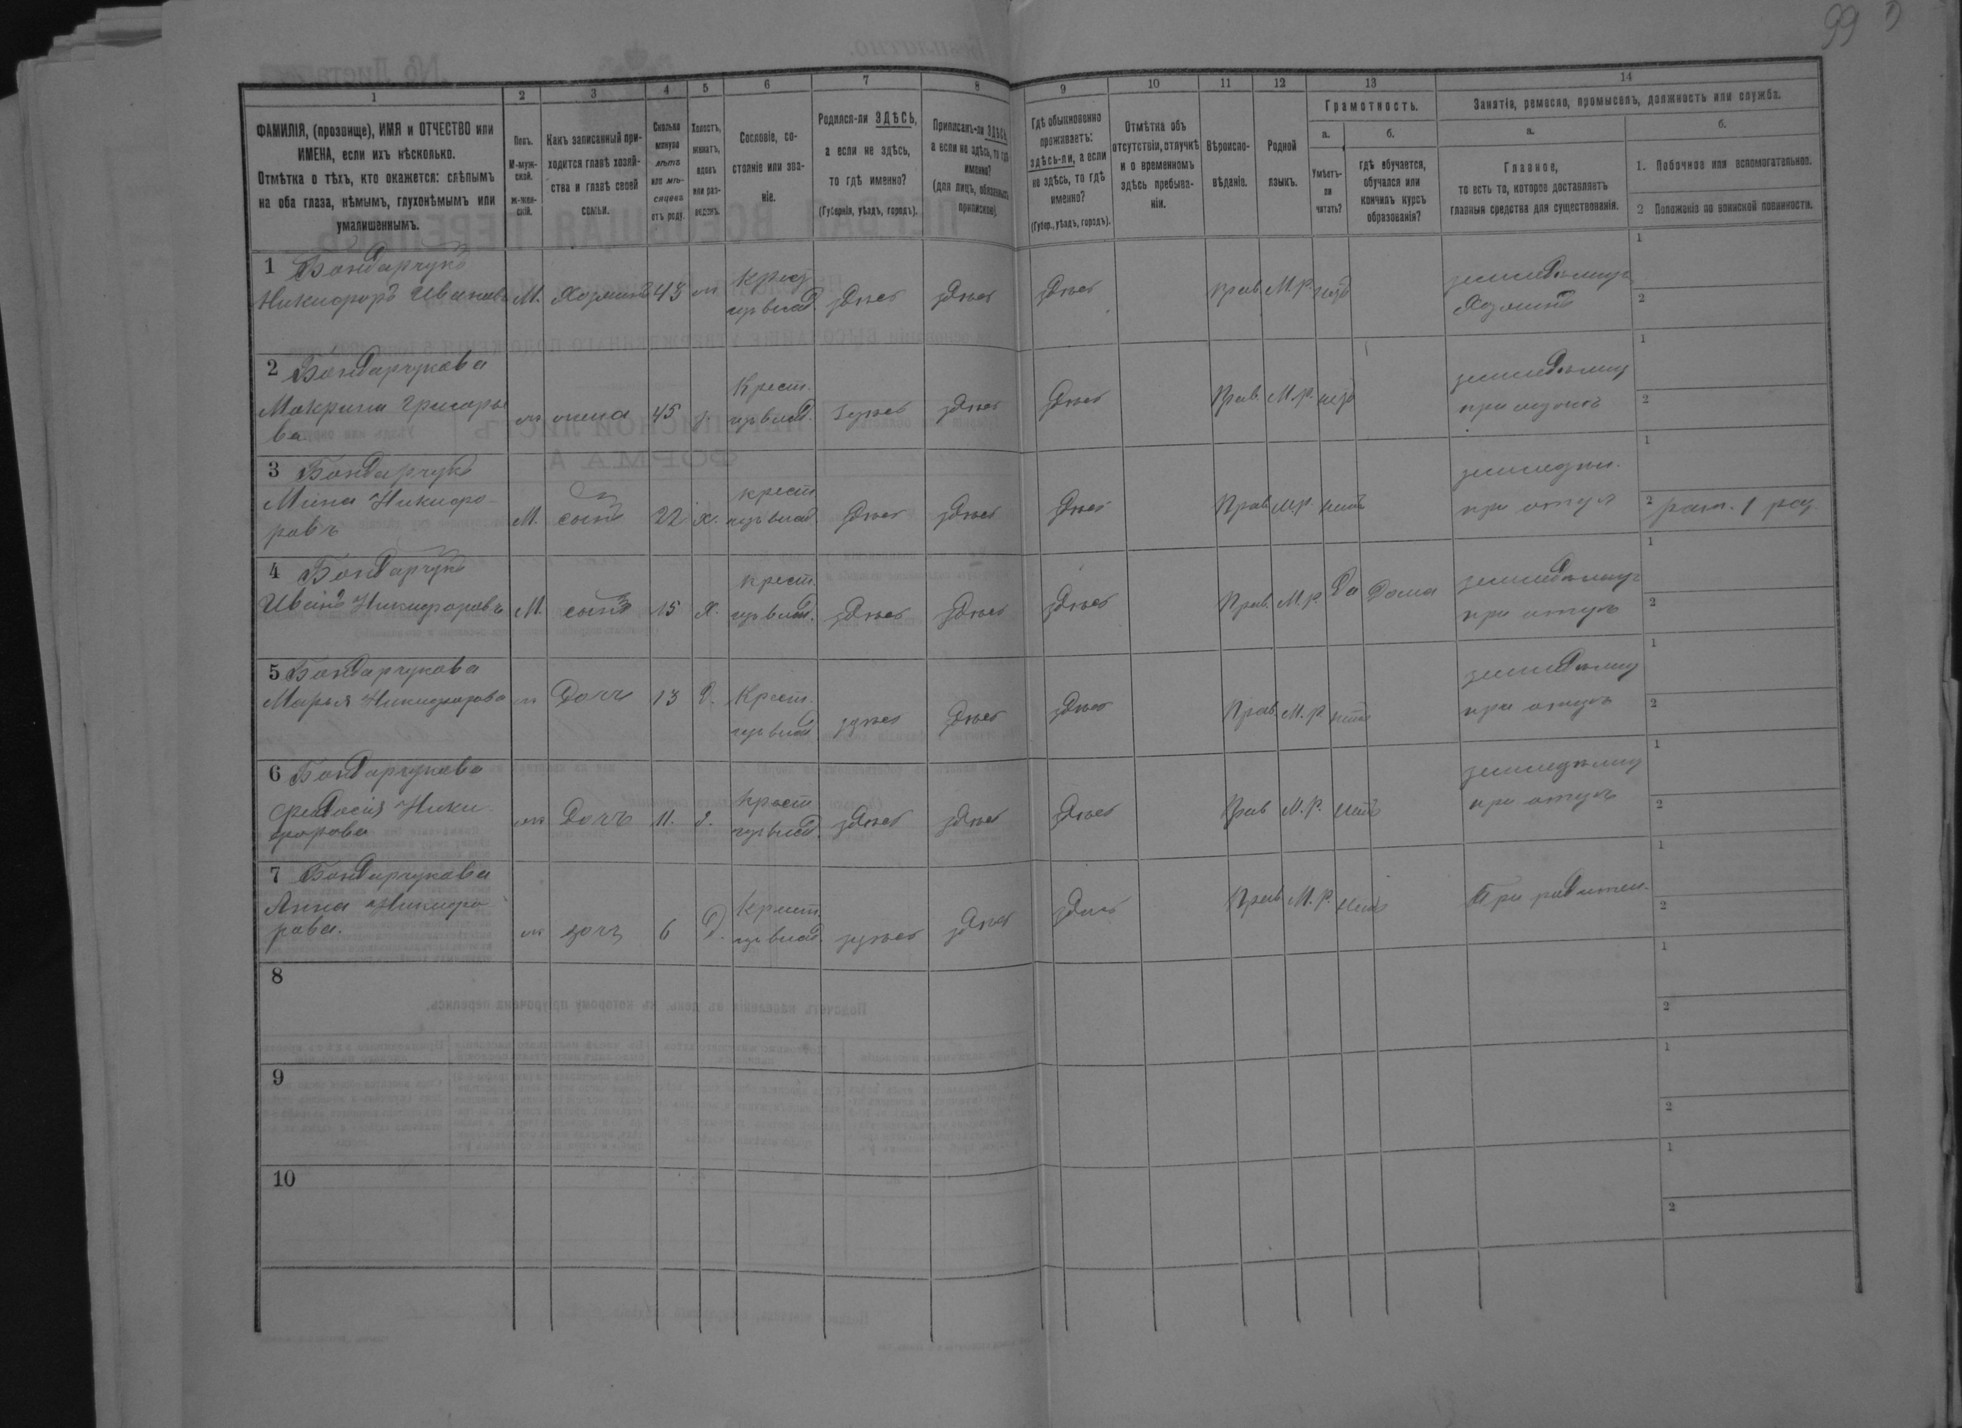 99
1 2 3 4 5 6 7 8 9 10 11 12 13 14
ФАМИЛІЯ, (прозвище), ИМЯ и ОТЧЕСТВО или
ИМЕНА, если ихъ нѣсколько.
Отмѣтка о тѣхъ, кто окажется: слѣпымъ
на оба глаза, нѣмымъ, глухонѣмымъ или
умалишеннымъ.
Полъ.
М-муж-
ской.
Ж-жен-
скій.
Какъ записанный при-
ходится главѣ хозяй-
ства и главѣ своей
семьи.
Сколько
минуло
лѣтъ
или мѣ-
сяцевъ
отъ роду.
Холостъ,
женатъ,
вдовъ
или раз-
веденъ.
Сословіе, со-
стояніе или зва-
ніе.
Родился-ли ЗДѢСЬ,
а если не здѣсь,
то гдѣ именно?
(Губернія, уѣздъ, городъ).
Приписанъ-ли ЗДѢСЬ
а если не здѣсь, то гдѣ
именно?
(для лицъ, обязанныхъ
припискою).
Гдѣ обыкновенно
проживаетъ:
здѣсь-ли, а если
не здѣсь, то гдѣ
именно?
(Губер., уѣздъ, городъ).
Отмѣтка объ
отсутствіи, отлучкѣ
и о временномъ
здѣсь пребыва-
ніи.
Вѣроиспо-
вѣданіе.
Родной
языкъ.
Грамотность.
а. б.
Умѣетъ-
ли
читать?
гдѣ обучается,
обучался или
кончилъ курсъ
образованія?
Занятіе, ремесло, промыселъ, должность или служба.
а. б.
Главное,
то есть то, которое доставляетъ
главныя средства для существованія.
1. Побочное или вспомогательное.
2 Положеніе по воинской повинности.
1 Бондарчукъ
Никифоръ Ивановъ М. Хозяинъ 43 ж Крест. здѣсь здѣсь здѣсь Прав. М.Р. нѣтъ земледѣлец
Хозяинъ
1
2
2 Бондарчукова
Макрина Григорье
ва ж жена 45 з Крест. здѣсь здѣсь здѣсь Прав. М.р. нѣтъ земледѣлец
при мужѣ
1
2
3 Бондарчукъ
Мина Никифо-
ровъ М. сынъ 22 х. крест. здѣсь здѣсь здѣсь Прав. М.р. нѣтъ
при отцѣ
1
2 рат. 1 раз.
4 Бондарчукъ
Иванъ Никифоровъ М. сынъ 15 х. крест. здѣсь здѣсь здѣсь Прав. М.р. Да Дома земледѣлец
при отцѣ
1
2
5 Бондарчукова
Марья Никифорова ж Дочь 13 д. Крест. здѣсь здѣсь здѣсь Прав. М.р. нѣтъ земледѣлец
при отцѣ
1
2
6 Бондарчукова
Федосія Ники-
форова ж Дочь 11. д. Крест. здѣсь здѣсь здѣсь Прав М.Р. нѣтъ земледѣлец
при отцѣ
1
2
7 Бондарчукова
Анна Никифо
рова. ж дочь 6 д. Крест. здѣсь здѣсь здѣсь Прав. М.Р. нѣтъ При родител.
1
2
8
1
2
9
1
2
10
1
2